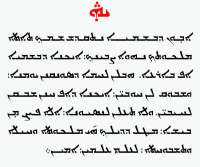 ܐܒܘܢ ܕܒܫܡܝܐ ܢܬܩܕܫ ܫܡܟ ܬܐܬܐ
ܡܠܟܘܬܟ ܢܗܘܐ ܨܒܝܢܟ: ܐܝܟܢܐ ܕܒܫܡܝܐ
ܐܦ ܒܐܪܥܐ. ܗܒ ܠܢ ܠܚܡܐ ܕܣܘܢܩܢܢ ܝܘܡܢܐ:
ܘܫܒܘܩ ܠܢ ܚܘܒܝܢ: ܐܝܟܢܐ ܕܐܦ ܚܢܢ ܫܒܩܢ
ܠܚܝܒܝܢ: ܘܠܐ ܬܥܠܢ ܠܢܣܝܘܢܐ: ܐܠܐ ܦܨܢ ܡܢ
ܒܝܫܐ: ܡܛܠ ܕܕܝܠܟ ܗܝ ܡܠܟܘܬܐ ܘܚܝܠܐ
ܘܬܫܒܘܚܬܐ: ܠܥܠܡ ܥܠܡܝܢ: ܐܡܝܢ